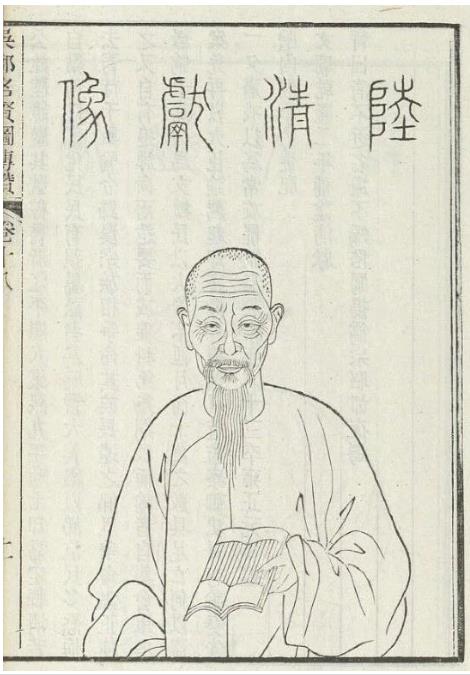 陸清獻像
吳郡名賢圖傳贊 卷十八